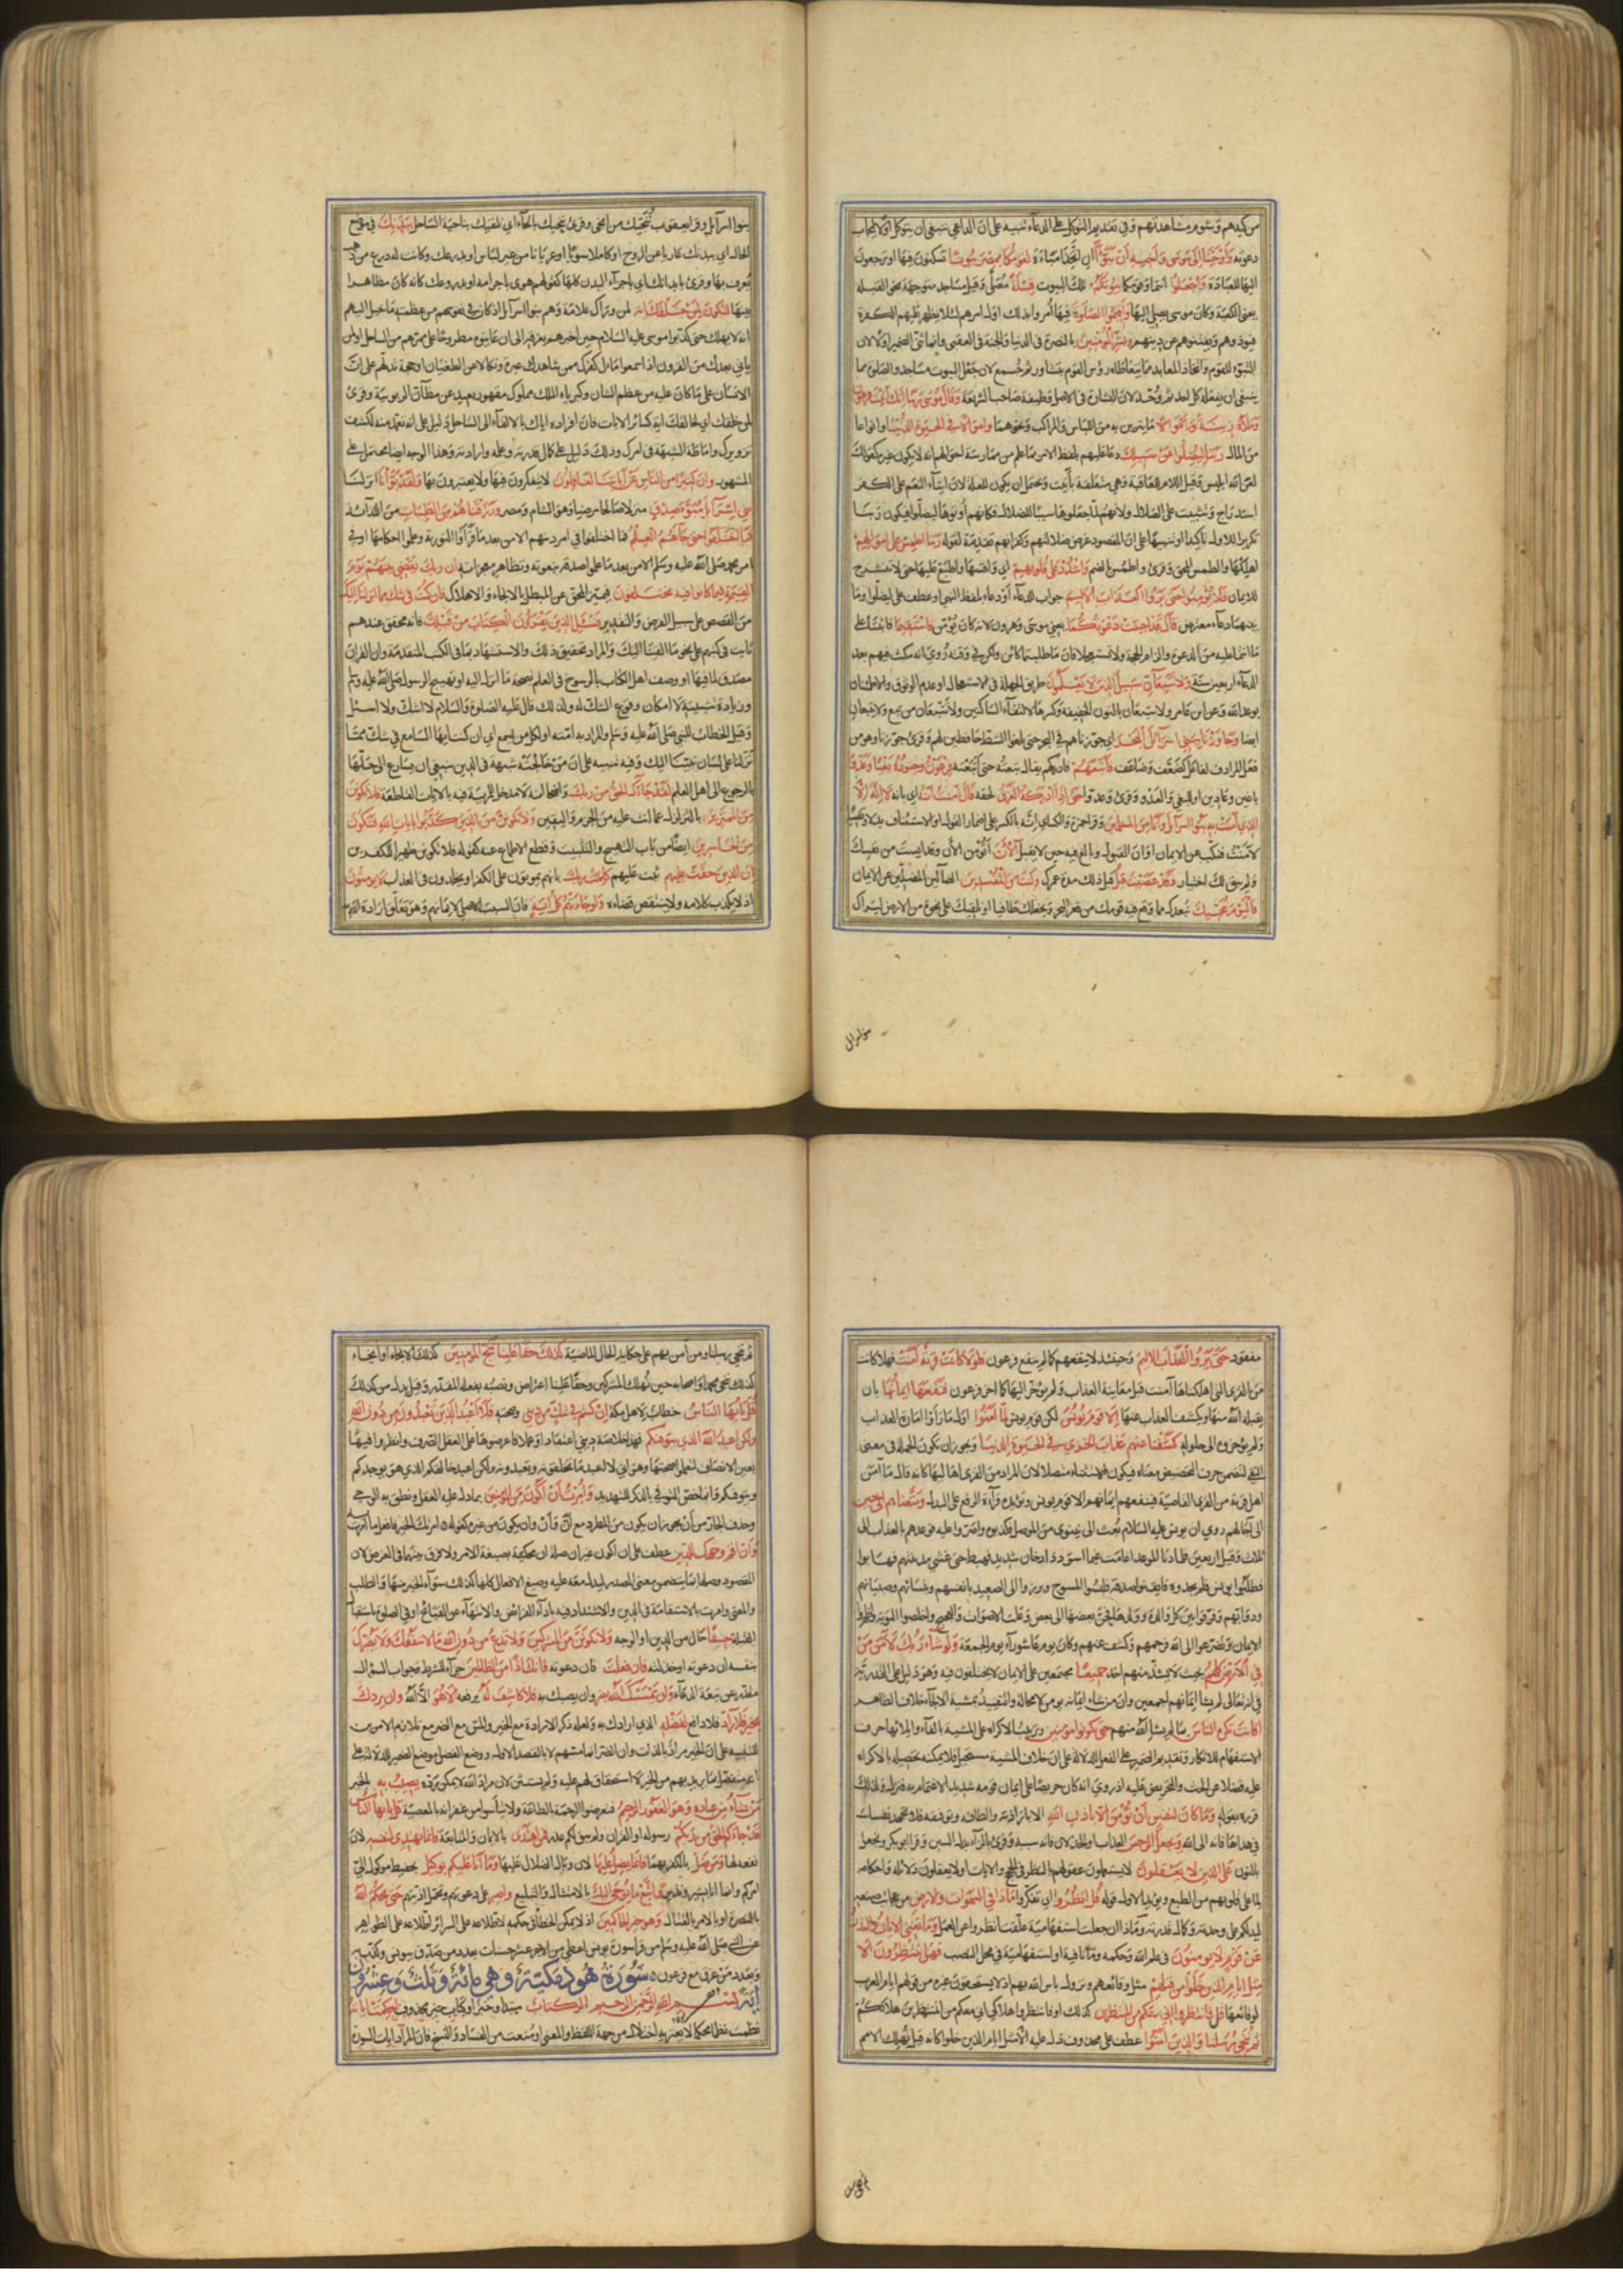 من كيدهم وشؤم مشاهدتهم وفي تقديم التوكل على الدعاء تنبيه على ان الداعي ينبغي ان يتوكل اولا لتجاب
دعوته وَاَوْحَيْنَا اِلىٰ مُوسىٰ وَاَخِيهِ اَنْ تَبَوَّاٰ اي اتخذا مباءة لِقَوْمِكُمَا بِمِصْرَ بُيُوتًا تسكنون فيها او ترجعون
اليها للعبادة وَاجْعَلُوا انتما وقومكما بُيُوتَكُمْ تلك البيوت قِبْلَةً مصلى وقيل مساجد متوجهة نحو القبلة
يعني الكعبة وكان موسى يصلي اليها وَاَقِيمُوا الصَّلٰوةَ فيها امروا بذلك اول امرهم لئلا يظهر عليهم الكفرة
فيؤذوهم ويفتنوهم عن دينهم وَبَشِّرِ الْمُؤْمِنِينَ بالنصرة في الدنيا والجنة في العقبى وانما ثنى الضمير اولا لان
التبوء للقوم واتخاذ المعابد مما يتعاطاه رؤس القوم بتشاور ثم جمع لان جعل البيوت مساجد والصلوة مما
ينبغي ان يفعله كل احد ثم وحد لان البشارة في الاصل وظيفة صاحب الشريعة وَقَالَ مُوسىٰ رَبَّنَا اِنَّكَ اٰتَيْتَ فرعون
وملاه زينة وَاَمْوَالًا ما يتزين به من اللباس والمراكب ونحوهما واموالا فِي الْحَيٰوةِ الدُّنْيَا وانواعا
من المال رَبَّنَا لِيُضِلُّوا عَنْ سَبِيلِكَ دعاء عليهم بلفظ الامر بما علم من ممارسة احوالهم انه لا يكون غيره كقولك
لعن الله ابليس وقيل اللام للعاقبة وهي متعلقة باتيت ويحتمل ان يكون للعلة لان ايتاء النعم على الكفر
استدراج وتثبيت على الضلال ولانهم لما جعلوها سببا للضلال فكانهم اوتوها ليضلوا فيكون ربنا
تكريرا للاول تاكيدا او تنبيها على ان المقصود عرض ضلالتهم وكفرانهم تقدمة لقوله ربنا اطمس على اموالهم
اهلكها والطمس المحق وقرئ واطمس بالضم وَاشْدُدْ عَلىٰ قُلُوبِهِمْ اي واقسها واطبع عليها حتى لا تنشرح
للايمان فَلَا يُؤْمِنُوا حَتّىٰ يَرَوُا الْعَذَابَ الْاَلِيمَ جواب للدعاء او دعاء بلفظ النهي او عطف على ليضلوا وما
بينهما دعاء معترض قَالَ قَدْ اُجِيبَتْ دَعْوَتُكُمَا يعني موسى وهرون لانه كان يؤمن فَاسْتَقِيمَا فاثبتا على
ما انتما عليه من الدعوة والزام الحجة ولا تستعجلا فان ما طلبتما كائن ولكن في وقته روي انه مكث فيهم بعد
الدعاء اربعين سنة وَلَا تَتَّبِعَانِّ سَبِيلَ الَّذِينَ لَا يَعْلَمُونَ طريق الجهلة في الاستعجال او عدم الوثوق والاطمئنان
بوعد الله وعن ابن عامر ولا تتبعان بالنون الخفيفة وكسرها لالتقاء الساكنين ولا تتبعان من تبع ولا تتبعان
ايضا وَجَاوَزْنَا بِبَنِي اِسْرَائِلَ الْبَحْرَ اي جوزناهم في البحر حتى بلغوا الشط حافظين لهم وقرئ جوزنا وهو من
فعل المرادف لفاعل كضعف وضاعف فَاَتْبَعَهُمْ فادركهم يقال تبعته حتى اتبعته فِرْعَوْنُ وَجُنُودُهُ بَغْيًا وَعَدْوًا
باغين وعادين او للبغي والعدو وقرئ وعدوا حَتّىٰ اِذَا اَدْرَكَهُ الْغَرَقُ لحقه قَالَ اٰمَنْتُ اَنَّهُ اي بانه لَا اِلٰهَ اِلَّا
الَّذِي اٰمَنَتْ بِهِ بَنُوا اِسْرَائِلَ وَاَنَا مِنَ الْمُسْلِمِينَ وقرأ حمزة والكسائي انه بالكسر على اضمار القول او الاستئناف بدلا وتفسيرا
لامنت فنكب عن الايمان اوان القبول وبالغ فيه حين لا يقبل آلْاٰنَ أتؤمن الآن وقد ايست من نفسك
ولم يبق لك اختيار وَقَدْ عَصَيْتَ قَبْلُ قبل ذلك مدة عمرك وَكُنْتَ مِنَ الْمُفْسِدِينَ الضالين المضلين عن الايمان
فَالْيَوْمَ نُنَجِّيكَ نبعدك مما وقع فيه قومك من قعر البحر ونجعلك طافيا او نلقيك على نجوة من الارض ليراك
بنوا اسرآئل وقرأ يعقوب ننجيك من انجى وقرئ ننحيك بالحاء اي نلقيك بناحية الساحل بِبَدَنِكَ في موضع
الحال اي ببدنك عاريا عن الروح او كاملا سويا او عريانا من غير لباس او بدرعك وكانت له درع من ذهب
يعرف بها وقرئ بابدانك اي باجزاء البدن كلها كقولهم هوى باجرامه او بدروعك كانه كان مظاهرا
بينها لِتَكُونَ لِمَنْ خَلْفَكَ اٰيَةً لمن وراءك علامة وهم بنوا اسرآئل اذ كان في نفوسهم من عظمته ما خيل اليهم
انه لا يهلك حتى كذبوا موسى عليه السلام حين اخبرهم بغرقه الى ان عاينوه مطروحا على ممرهم من الساحل او لمن
ياتي بعدك من القرون اذا سمعوا مآل امرك ممن شاهدك عبرة ونكالا عن الطغيان او حجة تدلهم على ان
الانسان على ما كان عليه من عظم الشان وكبرياء الملك مملوك مقهور بعيد عن مظان الربوبية وقرئ
لمن خلقك اي لخالقك اية كسائر الايات فان افراده اياك بالالقاء الى الساحل دليل على انه تعمد منه لكشف
تزويرك واماطة الشبهة في امرك وذلك دليل على كمال قدرته وعلمه وارادته وهذا الوجه ايضا محتمل على
المشهور وَاِنَّ كَثِيرًا مِنَ النَّاسِ عَنْ اٰيَاتِنَا لَغَافِلُونَ لا يتفكرون فيها ولا يعتبرون بها وَلَقَدْ بَوَّاْنَا انزلنا
بَنِي اِسْرَآئِلَ مُبَوَّاَ صِدْقٍ منزلا صالحا مرضيا وهو الشام ومصر وَرَزَقْنَاهُمْ مِنَ الطَّيِّبَاتِ من اللذائذ
فَمَا اخْتَلَفُوا حَتّىٰ جَآءَهُمُ الْعِلْمُ فما اختلفوا في امر دينهم الا من بعد ما قرأوا التورية وعلموا احكامها او في
امر محمد صلى الله عليه وسلم الا من بعد ما علموا صدقه بنعوته وتظاهر معجزاته اِنَّ رَبَّكَ يَقْضِي بَيْنَهُمْ يَوْمَ
الْقِيٰمَةِ فِيمَا كَانُوا فِيهِ يَخْتَلِفُونَ فيميز المحق عن المبطل بالانجاء والاهلاك فَاِنْ كُنْتَ فِي شَكٍّ مِمَّا اَنْزَلْنَا اِلَيْكَ
من القصص على سبيل الفرض والتقدير فَسْئَلِ الَّذِينَ يَقْرَؤُنَ الْكِتَابَ مِنْ قَبْلِكَ فانه محقق عندهم
ثابت في كتبهم على نحو ما القينا اليك والمراد تحقيق ذلك والاستشهاد بما في الكتب المتقدمة وان القران
مصدق لما فيها او وصف اهل الكتاب بالرسوخ في العلم بصحة ما انزل اليه او تهييج الرسول صلى الله عليه وسلم
وزيادة تثبيته لا امكان وقوع الشك له ولذلك قال عليه الصلوة والسلام لا اشك ولا اسئل
وقيل الخطاب للنبي صلى الله عليه وسلم والمراد به امته او لكل من يسمع اي ان كنت ايها السامع في شك مما
نزلنا على لسان نبينا اليك وفيه تنبيه على ان من خالجته شبهة في الدين ينبغي ان يسارع الى حلها
بالرجوع الى اهل العلم لَقَدْ جَآءَكَ الْحَقُّ مِنْ رَبِّكَ واضحا انه لا مدخل للمرية فيه بالايات القاطعة فَلَا تَكُونَنَّ
مِنَ الْمُمْتَرِينَ بالتزلزل عما انت عليه من الجزم واليقين وَلَا تَكُونَنَّ مِنَ الَّذِينَ كَذَّبُوا بِاٰيَاتِ اللّٰهِ فَتَكُونَ
مِنَ الْخَاسِرِينَ ايضا من باب التهييج والتثبيت وقطع الاطماع عنه كقوله فلا تكونن ظهيرا للكفرين
اِنَّ الَّذِينَ حَقَّتْ عَلَيْهِمْ ثبتت عليهم كَلِمَتُ رَبِّكَ بانهم يموتون على الكفر او يخلدون في العذاب لَا يُؤْمِنُونَ
اذ لا يكذب كلامه ولا ينتقض قضاءه وَلَوْ جَاءَتْهُمْ كُلُّ اٰيَةٍ فان السبب الاصلي لايمانهم وهو تعلق ارادة الله به
مفقود حَتّىٰ يَرَوُا الْعَذَابَ الْاَلِيمَ وحينئذ لا ينفعهم كما لم ينفع فرعون فَلَوْلَا كَانَتْ قَرْيَةٌ اٰمَنَتْ فهلا كانت
من القرى التي اهلكناها آمنت قبل معاينة العذاب ولم يؤخر اليها كما اخر فرعون فَنَفَعَهَا اِيمَانُهَا بان
يقبله الله منها ويكشف العذاب عنها اِلَّا قَوْمَ يُونُسَ لكن قوم يونس لَمَّا اٰمَنُوا اول ما رأوا امارة العذاب
ولم يؤخروه الى حلوله كَشَفْنَا عَنْهُمْ عَذَابَ الْخِزْيِ فِي الْحَيٰوةِ الدُّنْيَا ويجوز ان تكون الجملة في معنى
النفي لتضمن حرف التحضيض معناه فيكون الاستثناء متصلا لان المراد من القرى اهاليها كانه قال ما آمن
اهل قرية من القرى العاصية فينفعهم ايمانهم الا قوم يونس ويؤيده قراءة الرفع على البدل وَمَتَّعْنَاهُمْ اِلىٰ حِينٍ
الى آجالهم روي ان يونس عليه السلام بعث الى نينوى من الموصل فكذبوه واصروا عليه فوعدهم بالعذاب الى
ثلاث وقيل اربعين فلما دنا الموعد اغامت غيما اسود ذا دخان شديد فهبط حتى غشي مدينتهم فهابوا
فطلبوا يونس فلم يجدوه فايقنوا صدقه فلبسوا المسوح وبرزوا الى الصعيد بانفسهم ونسائهم وصبيانهم
ودوابهم وفرقوا بين كل والدة وولدها فحن بعضها الى بعض وعلت الاصوات والعجيج واخلصوا التوبة واظهروا
الايمان وتضرعوا الى الله فرحمهم وكشف عنهم وكان يوم عاشوراء يوم الجمعة وَلَوْ شَآءَ رَبُّكَ لَاٰمَنَ مَنْ
فِي الْاَرْضِ كُلُّهُمْ بحيث لا يشذ منهم احد جَمِيعًا مجتمعين على الايمان لا يختلفون فيه وهو دليل على القدرية
في انه تعالى لم يشأ ايمانهم اجمعين وان من شاء ايمانه يؤمن لا محالة والتقييد بمشية الالجاء خلاف الظاهر
اَفَاَنْتَ تُكْرِهُ النَّاسَ بما لم يشأ الله منهم حَتّىٰ يَكُونُوا مُؤْمِنِينَ وترتيب الاكراه على المشية بالفاء وايلائها حرف
الاستفهام للانكار وتقديم الضمير على الفعل للدلالة على ان خلاف المشية مستحيل فلا يمكنه تحصيله بالاكراه
عليه فضلا عن الحث والتحريض عليه اذ روي انه كان حريصا على ايمان قومه شديد الاهتمام به فنزلت ولذلك
قرره بقوله وَمَا كَانَ لِنَفْسٍ اَنْ تُؤْمِنَ اِلَّا بِاِذْنِ اللّٰهِ الا بارادته والطافه وتوفيقه فلا تجهد نفسك
في هداها فانه الى الله وَيَجْعَلُ الرِّجْسَ العذاب او الخذلان فانه سببه وقرئ بالزاء بدل السين وقرأ ابو بكر ونجعل
بالنون عَلَى الَّذِينَ لَا يَعْقِلُونَ لا يستعملون عقولهم بالنظر في الحجج والايات او لا يعقلون دلائله واحكامه
لما على قلوبهم من الطبع ويؤيد الاول قوله قُلِ انْظُرُوا اي تفكروا مَاذَا فِي السَّمٰوَاتِ وَالْاَرْضِ من عجائب صنعه
ليدلكم على وحدته وكمال قدرته وماذا ان جعلت استفهامية علقت انظروا عن العمل وَمَا تُغْنِي الْاٰيَاتُ وَالنُّذُرُ
عَنْ قَوْمٍ لَا يُؤْمِنُونَ في علم الله وحكمه وما نافية او استفهامية في محل النصب فَهَلْ يَنْتَظِرُونَ اِلَّا
مِثْلَ اَيَّامِ الَّذِينَ خَلَوْا مِنْ قَبْلِهِمْ مثل وقائعهم ونزول باس الله بهم اذ لا يستحقون غيره من قولهم ايام العرب
لوقائعها قُلْ فَانْتَظِرُوا اِنِّي مَعَكُمْ مِنَ الْمُنْتَظِرِينَ كذلك او فانتظروا هلاكي اني معكم من المنتظرين هلاككم
ثُمَّ نُنَجِّي رُسُلَنَا وَالَّذِينَ اٰمَنُوا عطف على محذوف دل عليه الا مثل ايام الذين خلوا كانه قيل نهلك الامم
ثم ننجي رسلنا ومن آمن بهم على حكاية الحال الماضية كَذٰلِكَ حَقًّا عَلَيْنَا نُنْجِ الْمُؤْمِنِينَ كذلك الانجاء او انجاء
كذلك ننجي محمدا واصحابه حين نهلك المشركين وحقا علينا اعتراض ونصبه بفعله المقدر وقيل بدل من كذلك
قُلْ يَا اَيُّهَا النَّاسُ خطاب لاهل مكة اِنْ كُنْتُمْ فِي شَكٍّ مِنْ دِينِي وصحته فَلَا اَعْبُدُ الَّذِينَ تَعْبُدُونَ مِنْ دُونِ اللّٰهِ
وَلٰكِنْ اَعْبُدُ اللّٰهَ الَّذِي يَتَوَفّٰيكُمْ فهذا خلاصة ديني اعتقادا وعملا فاعرضوها على العقل الصرف وانظروا فيها
بعين الانصاف لتعلموا صحتها وهو اني لا اعبد ما تخلقونه وتعبدونه ولكن اعبد خالقكم الذي هو يوجدكم
ويتوفكم وانما خص التوفي بالذكر للتهديد وَاُمِرْتُ اَنْ اَكُونَ مِنَ الْمُؤْمِنِينَ بما دل عليه العقل ونطق به الوحي
وحذف الجار من أن يجوز ان يكون من المطرد مع أنّ وأن وان يكون من غيره كقوله امرتك الخير فافعل ما امرت به
وَاَنْ اَقِمْ وَجْهَكَ لِلدِّينِ عطف على ان اكون غير ان صلة ان محكية بصيغة الامر ولا فرق بينهما في الغرض لان
المقصود وصلها بما يتضمن معنى المصدر ليدل معه عليه وصيغ الافعال كلها كذلك سواء الخبر منها والطلب
والمعنى وامرت بالاستقامة في الدين والاشتداد فيه باداء الفرائض والانتهاء عن القبائح او في الصلوة باستقبال
القبلة حَنِيفًا حال من الدين او الوجه وَلَا تَكُونَنَّ مِنَ الْمُشْرِكِينَ وَلَا تَدْعُ مِنْ دُونِ اللّٰهِ مَا لَا يَنْفَعُكَ وَلَا يَضُرُّكَ
بنفسه ان دعوته او خذلته فَاِنْ فَعَلْتَ فان دعوته فَاِنَّكَ اِذًا مِنَ الظَّالِمِينَ جزاء للشرط وجواب لسؤال
مقدر عن تبعة الدعاء وَاِنْ يَمْسَسْكَ اللّٰهُ بِضُرٍّ وان يصبك به فَلَا كَاشِفَ لَهُ يرفعه اِلَّا هُوَ الا الله وَاِنْ يُرِدْكَ
بِخَيْرٍ فَلَا رَآدَّ فلا دافع لِفَضْلِهِ الذي ارادك به ولعله ذكر الارادة مع الخير والمس مع الضر مع تلازم الامرين
للتنبيه على ان الخير مراد بالذات وان الضر انما مسهم لا بالقصد الاول ووضع الفضل موضع الضمير للدلالة على
انه متفضل بما يريد بهم من الخير لا استحقاق لهم عليه ولم يستثن لان مراد الله لا يمكن رده يُصِيبُ بِهِ بالخير
مَنْ يَشَاءُ مِنْ عِبَادِهِ وَهُوَ الْغَفُورُ الرَّحِيمُ فتعرضوا لرحمته بالطاعة ولا تيأسوا من غفرانه بالمعصية قُلْ يَا اَيُّهَا النَّاسُ
قَدْ جَاءَكُمُ الْحَقُّ مِنْ رَبِّكُمْ رسوله او القران ولم يبق لكم عذر فَمَنِ اهْتَدىٰ بالايمان والمتابعة فَاِنَّمَا يَهْتَدِي لِنَفْسِهِ لان
نفعه لها وَمَنْ ضَلَّ بالكفر بهما فَاِنَّمَا يَضِلُّ عَلَيْهَا لان وبال الضلال عليها وَمَا اَنَا عَلَيْكُمْ بِوَكِيلٍ بحفيظ موكول الي
امركم وانما انا بشير ونذير وَاتَّبِعْ مَا يُوحىٰ اِلَيْكَ بالامتثال والتبليغ وَاصْبِرْ على دعوتهم وتحمل اذيتهم حَتّىٰ يَحْكُمَ اللّٰهُ
بالنصرة او بالامر بالقتال وَهُوَ خَيْرُ الْحَاكِمِينَ اذ لا يمكن الخطأ في حكمه لاطلاعه على السرائر اطلاعه على الظواهر
عن النبي صلى الله عليه وسلم من قرأ سورة يونس اعطي من الاجر عشر حسنات بعدد من صدق بيونس وكذب به
وبعدد من غرق مع فرعون سُورَةُ هُود مَكِّيَّةٌ وَهِيَ مِائَةٌ وَثَلٰثٌ وَعِشْرُونَ
اٰيَةً بسم الله الرحمن الرحيم الٓرٰ كِتَابٌ مبتدأ وخبر او كتاب خبر محذوف اُحْكِمَتْ اٰيَاتُهُ
نظمت نظما محكما لا يعتريه اختلال من جهة اللفظ والمعنى او منعت من الفساد والنسخ فان المراد ايات السورة